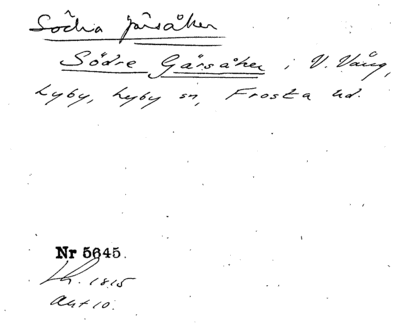 Södra gåsåker
Södre Gåsåker i V. Vång,
Lyby, Lyby sn, Frosta hd.
Nr 5645.
Lh. 1815
Akt 10.